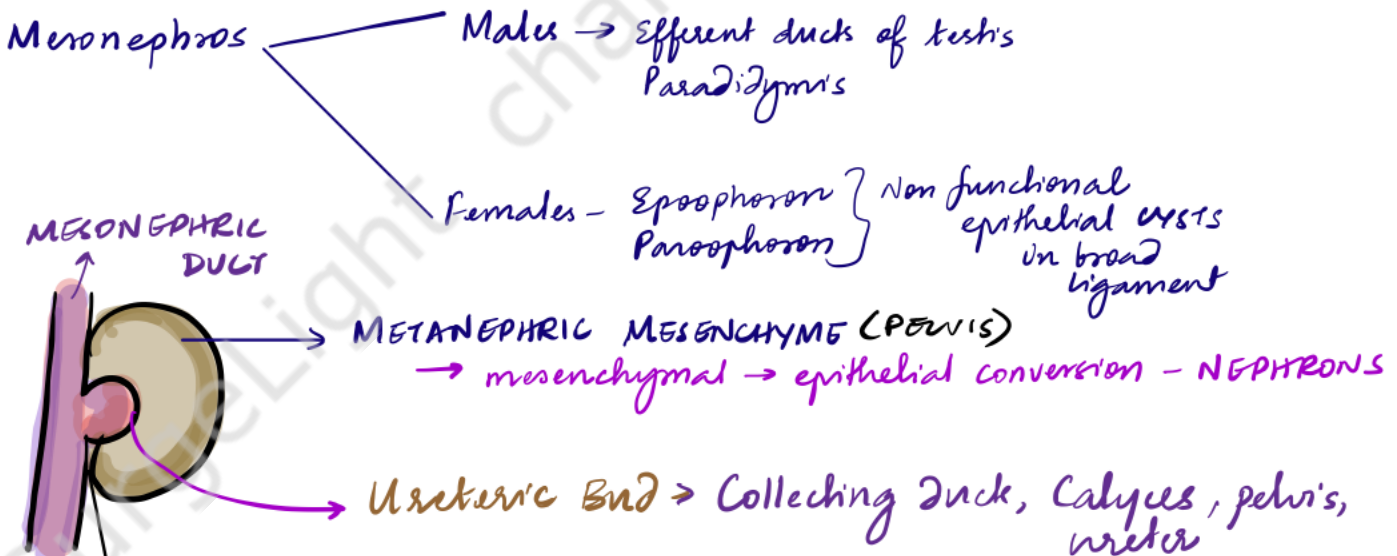 Mesonephros
Males → Efferent ducts of testis
Paradidymis
Females – Epoophoron
Paroophoron
Non functional
epithelial cysts
in broad
ligament
MESONEPHRIC
DUCT
METANEPHRIC MESENCHYME (PELVIS)
→ mesenchymal → epithelial conversion – NEPHRONS
Ureteric Bud > Collecting duck, Calyces, pelvis,
ureter